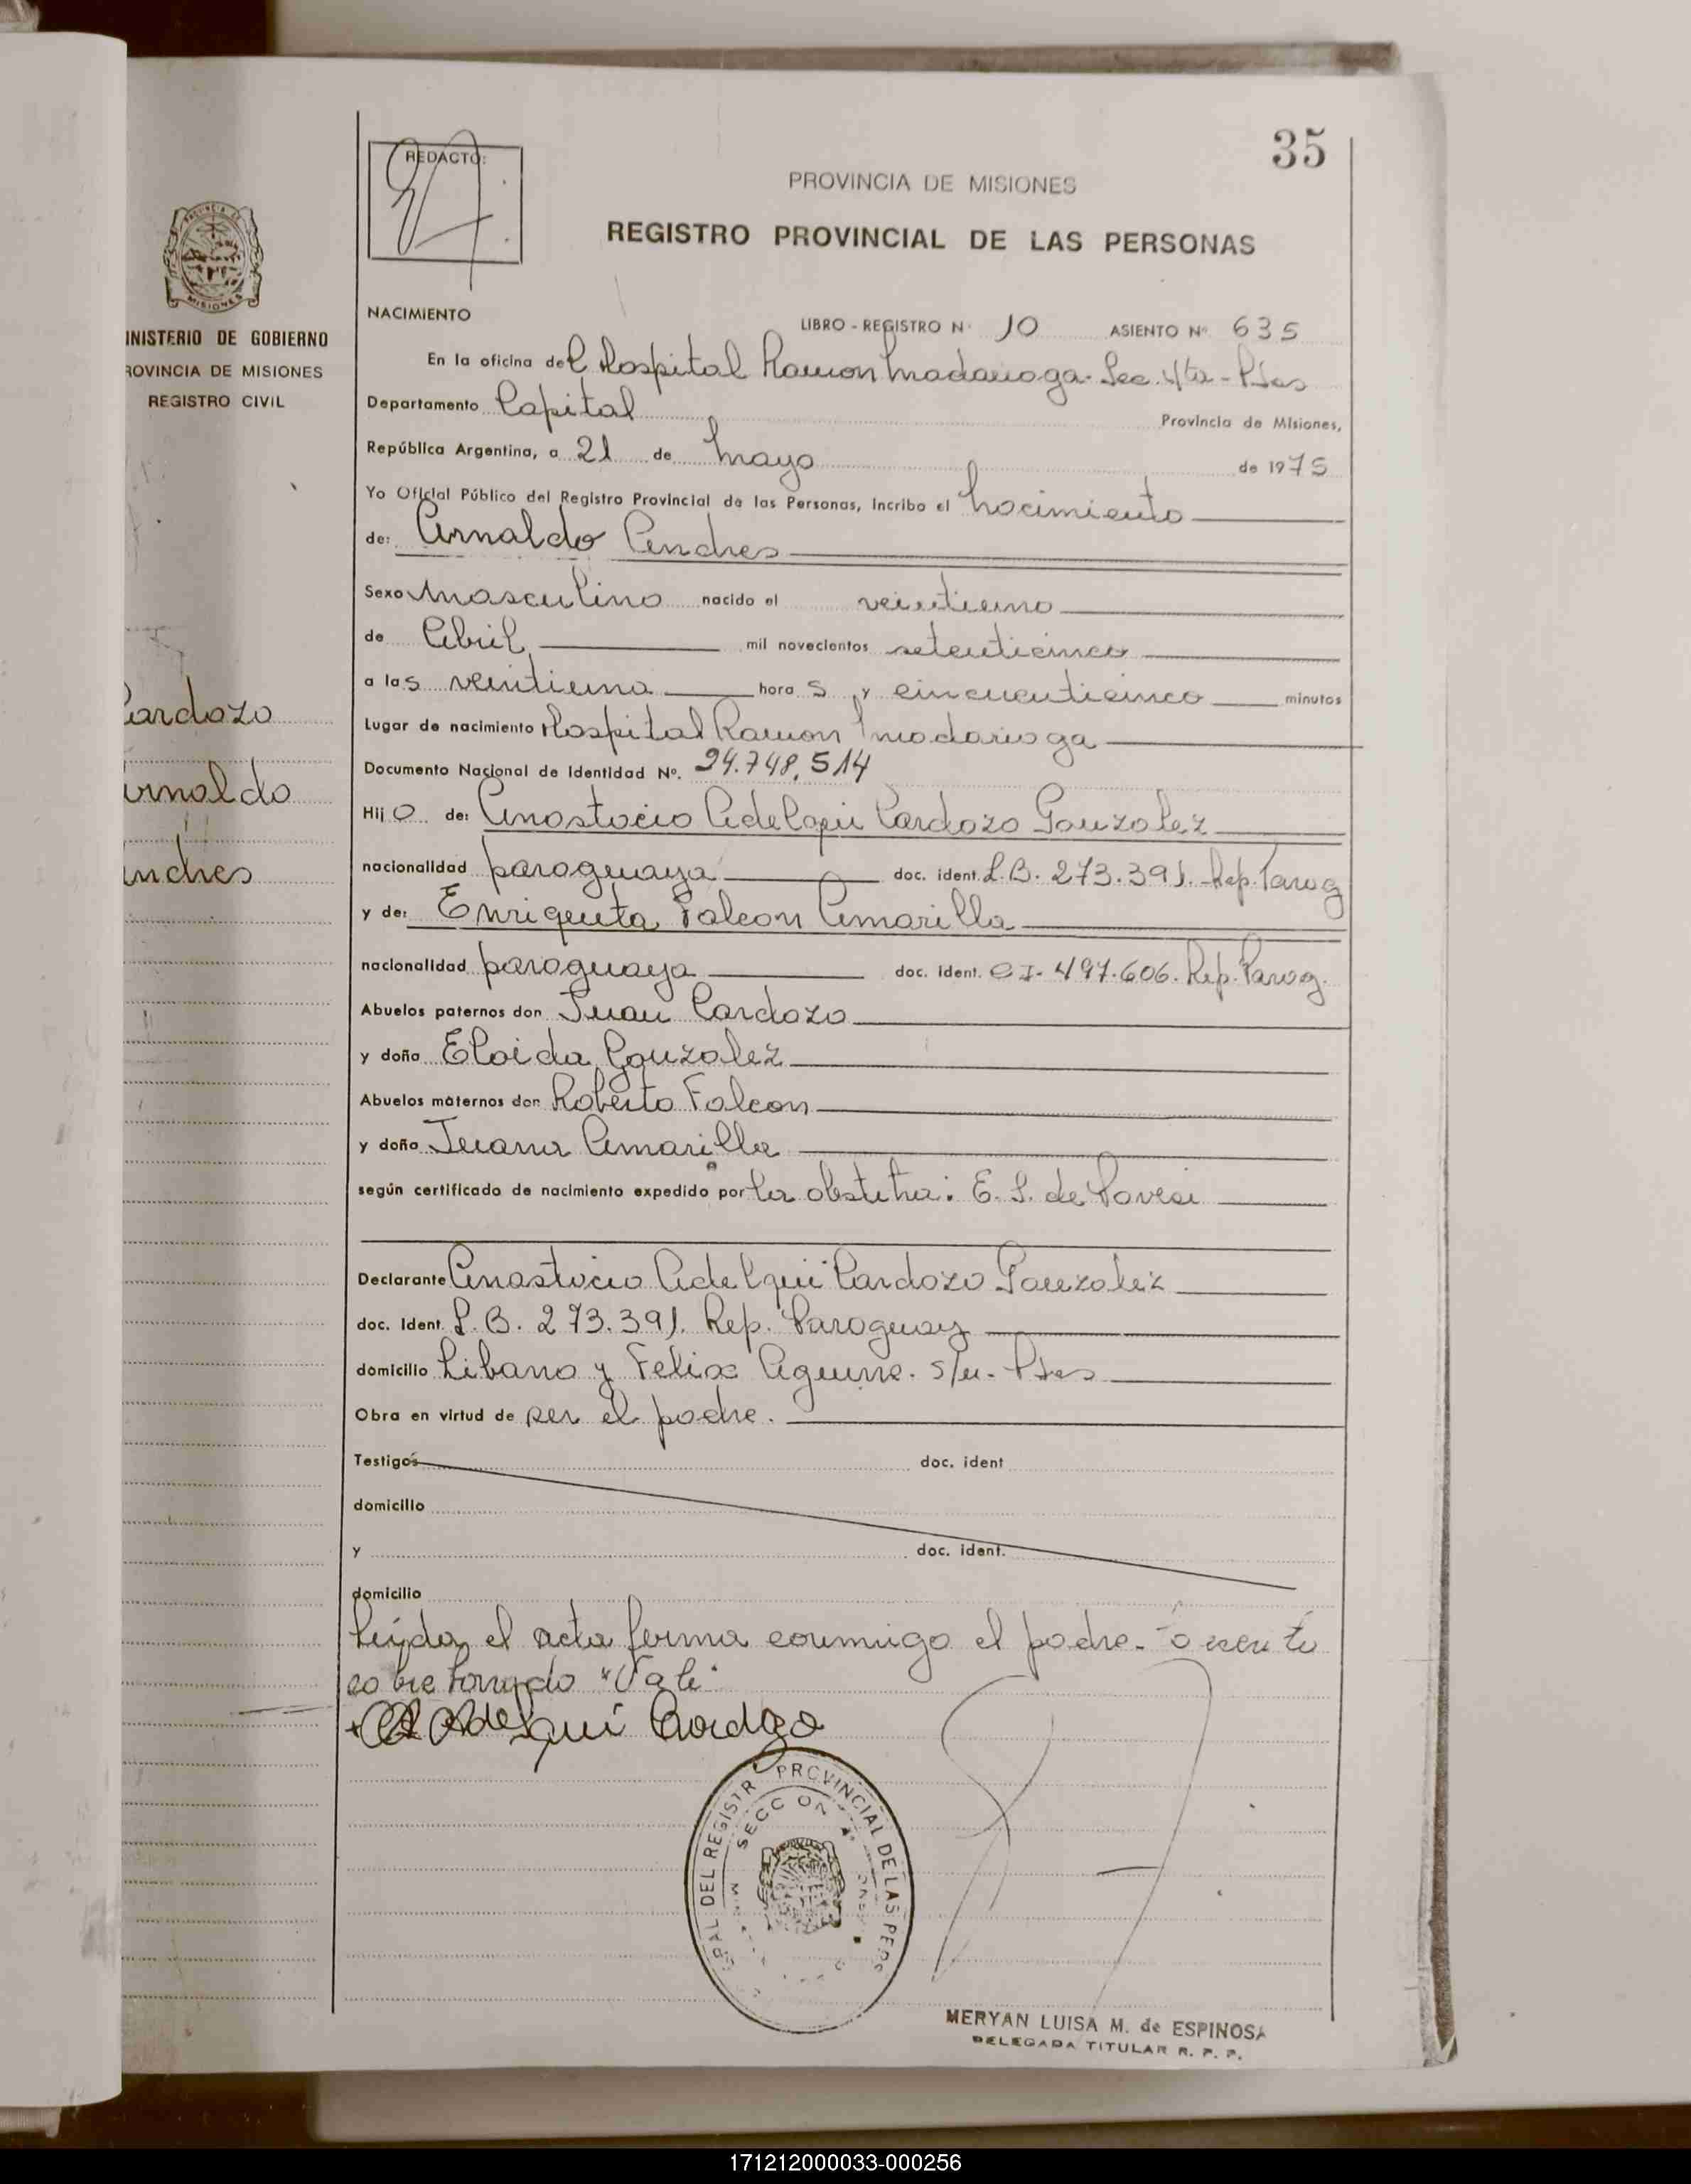 35
REDACTO:
PROVINCIA DE MISIONES
REGISTRO PROVINCIAL DE LAS PERSONAS
MISIONES
INISTERIO DE GOBIERNO
ROVINCIA DE MISIONES
REGISTRO CIVIL
Cardozo
Arnaldo
Andres
NACIMIENTO LIBRO - REGISTRO N· 10 ASIENTO Nº 635
En la oficina del Hospital Ramon Madariaga - Sec. 4ta - Pdas
Departamento Capital Provincia de Misiones,
República Argentina, a 21 de Mayo de 1975
Yo Oficial Público del Registro Provincial de las Personas, Incribo el Nacimiento
de: Arnaldo Andres
Sexo Masculino nacido el veintiuno
de Abril mil novecientos setenticinco
a las veintiuna hora s y cincuenticinco minutos
Lugar de nacimiento Hospital Ramon Madariaga
Documento Nacional de Identidad Nº. 24.748.514
Hij o de: Anastacio Adelqui Cardozo Gonzalez
nacionalidad paraguaya doc. ident. L.B. 273.391. Rep. Parag
y de: Enriqueta Falcon Amarilla
nacionalidad paraguaya doc. Ident. CI- 497.606. Rep. Parag.
Abuelos paternos don Juan Cardozo
y doña Eloida Gonzalez
Abuelos maternos don Roberto Falcon
y doña Juana Amarilla
según certificado de nacimiento expedido por la obstetra: E. S. de
Declarante Anastacio Adelqui Cardozo Gonzalez
doc. Ident. L.B. 273.391. Rep. Paraguay
domicilio Libano y Felix Aguirre. s/n - Pdas
Obra en virtud de ser el padre.
Testigos doc. ident
domicilio
y doc. ident.
domicilio
Leida el acta firma conmigo el padre.
sobre borrado "Vale"
Adelqui Cardozo
PROVINCIAL DE LAS PERS
RAL DEL REGISTR
SECC ON
MERYAN LUISA M. de ESPINOSA
DELEGADA TITULAR R. P. P.
171212000033-000256